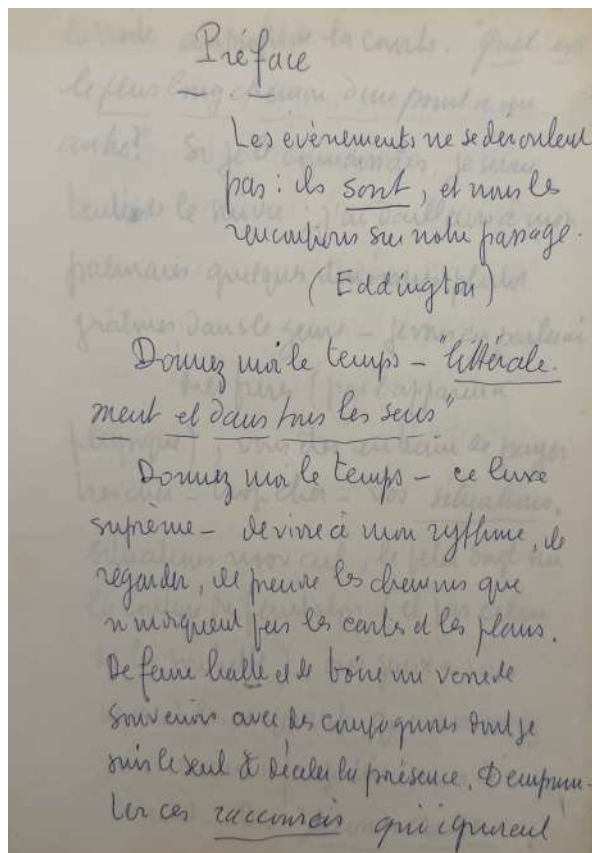 Préface
Les évènements ne se deroulent
pas : ils sont, et nous les
rencontrons sur notre passage.
(Eddington)
Donnez moi le temps - "littérale-
ment et dans tous les sens"
Donnez moi le temps - ce luxe
suprême - de vivre à mon rythme, de
regarder, de prendre les chemins que
n'indiquent pas les cartes et les plans.
De faire halte et de boire un verre de
souvenirs avec des compagnons dont je
suis le seul à déceler la présence. D'emprun-
ter ces raccourcis qui ignorent